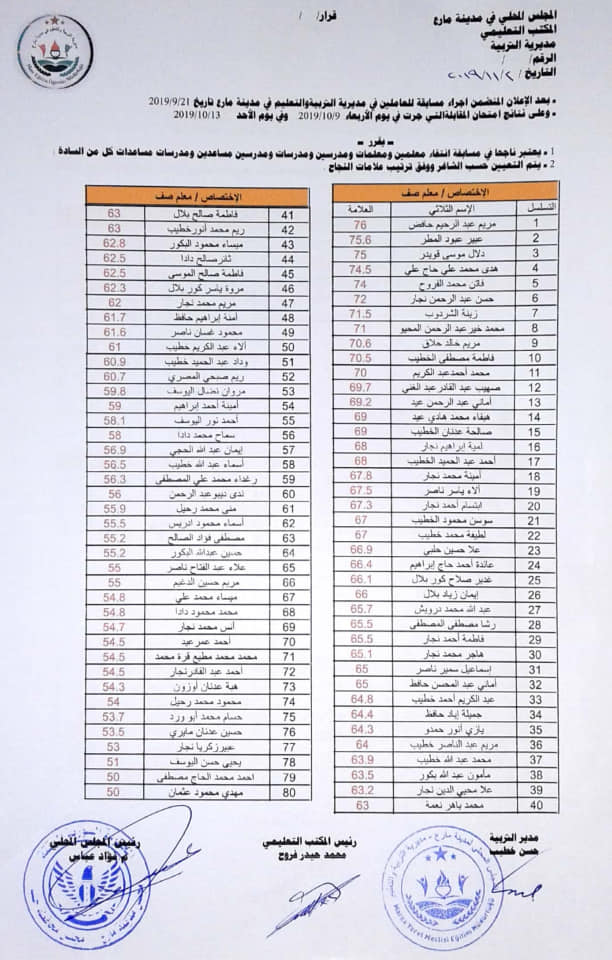 المجلس المحلي في مدينة مارع
قرار/ / /
المكتب التعليمي
مديرية التربية
الرقم/ / /
التاريخ / ٢٠١٩/١١/٢
ـ بعد الإعلان المتضمن اجراء مسابقة للعاملين في مديرية التربيةوالتعليم في مدينة مارع تاريخ 2019/9/21
ـ وعلى نتائج امتحان المقابلةالتي جرت في يوم الأربعاء 2019/10/9 وفي يوم الأحد 2019/10/13
ـ يقرر ـ
1 ـ يعتبر ناجحا في مسابقة انتقاء معلمين ومعلمات ومدرسين ومدرسات ومدرسين مساعدين ومدرسات مساعدات كل من السادة :
2 ـ يتم التعيين حسب الشاغر ووفق ترتيب علامات النجاح
الإختصاص / معلم صف
التسلسل الإسم الثلاثي العلامة
1 مريم عبد الرحيم حافض 76
2 عبير عبود المطر 75.6
3 دلال موسى قويدر 75
4 هدى محمد علي حاج علي 74.5
5 فاتن محمد الفروح 74
6 حسن عبد الرحمن نجار 72
7 زينة الشردوب 71.5
8 محمد خيرعبد الرحمن المحيو 71
9 مريم خالد حلاق 70.6
10 فاطمة مصطفى الخطيب 70.5
11 محمد أحمدعبد الكريم 70
12 صهيب عبد القادرعبد الغني 69.7
13 أماني عبد الرحمن عيد 69.2
14 هيفاء محمد هادي عيد 69
15 صالحة عدنان الخطيب 69
16 لمية إبراهيم نجار 68
17 أحمد عبد الحميد الخطيب 68
18 أمينة محمد نجار 67.8
19 ألاء ياسر ناصر 67.5
20 ابتسام أحمد نجار 67.3
21 سوسن محمود الخطيب 67
22 لطيفة محمد خطيب 67
23 علا حسين حلبي 66.9
24 عائدة أحمد حاج إبراهيم 66.4
25 غدير صلاح كور بلال 66.1
26 إيمان زياد بلال 66
27 عبد الله محمد درويش 65.7
28 رشا مصطفى المصطفى 65.5
29 فاطمة أحمد نجار 65.5
30 هاجر محمد نجار 65.1
31 إسماعيل سمير ناصر 65
32 أماني عبد المحسن حافظ 65
33 عبد الكريم أحمد خطيب 64.8
34 جميلة إياد حافظ 64.4
35 يازي أنور حمدو 64.3
36 مريم عبد الناصر خطيب 64
37 محمد عبد الله خطيب 63.9
38 مأمون عبد الله بكور 63.5
39 علا محيي الدين نجار 63.2
40 محمد باهر نعمة 63
الإختصاص / معلم صف
41 فاطمة صالح بلال 63
42 ريم محمد أنورخطيب 63
43 ميساء محمود البكور 62.8
44 ثائرصالح دادا 62.5
45 فاطمة صالح الموسى 62.5
46 مروة ياسر كور بلال 62.3
47 مريم محمد نجار 62
48 أمنة إبراهيم حافظ 61.7
49 محمود غسان ناصر 61.6
50 ألاء عبد الكريم خطيب 61
51 وداد عبد الحميد خطيب 60.9
52 ريم صبحي المصري 60.7
53 مروان نضال اليوسف 59.8
54 أمينة أحمد إبراهيم 59
55 أحمد نور اليوسف 58.1
56 سماح محمد دادا 58
57 إيمان عبد الله الحجي 56.9
58 أسماء عبد الله خطيب 56.5
59 رغداء محمد علي المصطفى 56.3
60 ندى ديبوعبد الرحمن 56
61 منى محمد رحيل 55.9
62 أسماء محمود ادريس 55.5
63 مصطفى فؤاد الصالح 55.2
64 حسين عبدالله البكور 55.2
65 علاء عبد الفتاح ناصر 55
66 مريم حسين الدغيم 55
67 ميساء محمد علي 54.8
68 محمد محمود دادا 54.8
69 أنس محمد نجار 54.7
70 أحمد عمرعيد 54.5
71 محمد محمد مطيع قرة محمد 54.5
72 أحمد عبد القادرنجار 54.5
73 هبة عدنان أوزون 54.3
74 محمود محمد رحيل 54
75 حسام محمد أبو ورد 53.7
76 حسين عدنان مايري 53.6
77 عبيرزكريا نجار 53
78 يحيى حسن اليوسف 51
79 احمد محمد الحاج مصطفى 50
80 مهدي محمود عثمان 50
مدير التربية
حسن خطيب
رئيس المكتب التعليمي
محمد هيدر فروح
رئيس المجلس المحلي
م فؤاد عباس
Marea Yerel Meclisi Eğitim Müdürlüğü